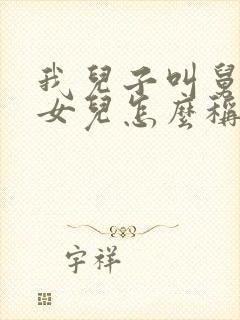 我兒子叫舅
女兒怎麼稱
字祥